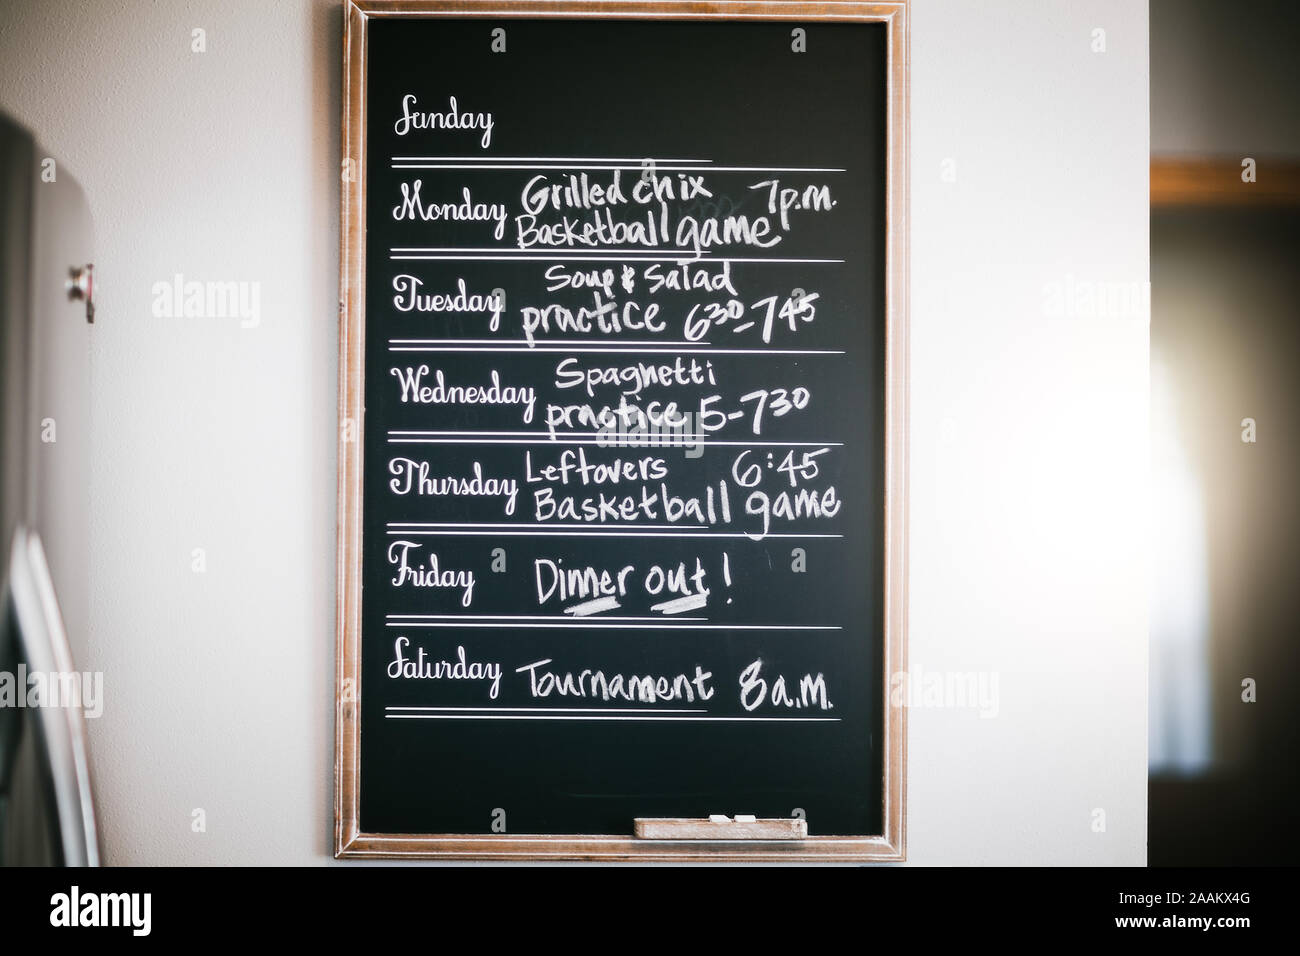 Sunday
Monday Grilled chix 7p.m.
Basketball game
Tuesday Soup & Salad
practice 6³⁰-7⁴⁵
Wednesday Spaghetti
practice 5-7³⁰
Thursday Leftovers 6:45
Basketball game
Friday Dinner out!
Saturday Tournament 8a.m.
alamy
Image ID: 2AAKX4G
www.alamy.com